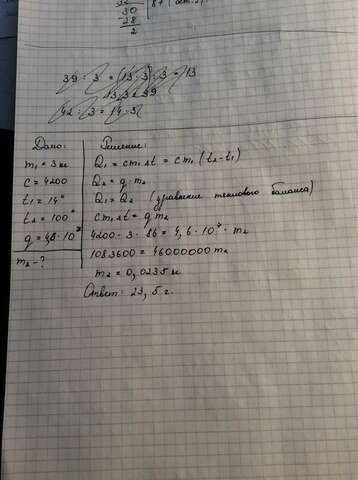 30
28
2
39 : 3 = (13 · 3) : 3 = 13
13 · 3 = 39
42 : 3 = 14 · 3
Дано:
m₁ = 3 кг
c = 4200
t₁ = 14°
t₂ = 100°
q = 4,6 · 10⁷
m₂ - ?
Решение:
Q₁ = cm₁ Δt = cm₁ (t₂ - t₁)
Q₂ = q · m₂
Q₁ = Q₂ (уравнение теплового баланса)
cm₁ Δt = q m₂
4200 · 3 · 86 = 4,6 · 10⁷ · m₂
1083600 = 46000000 m₂
m₂ = 0,0235 кг
Ответ: 23,5 г.